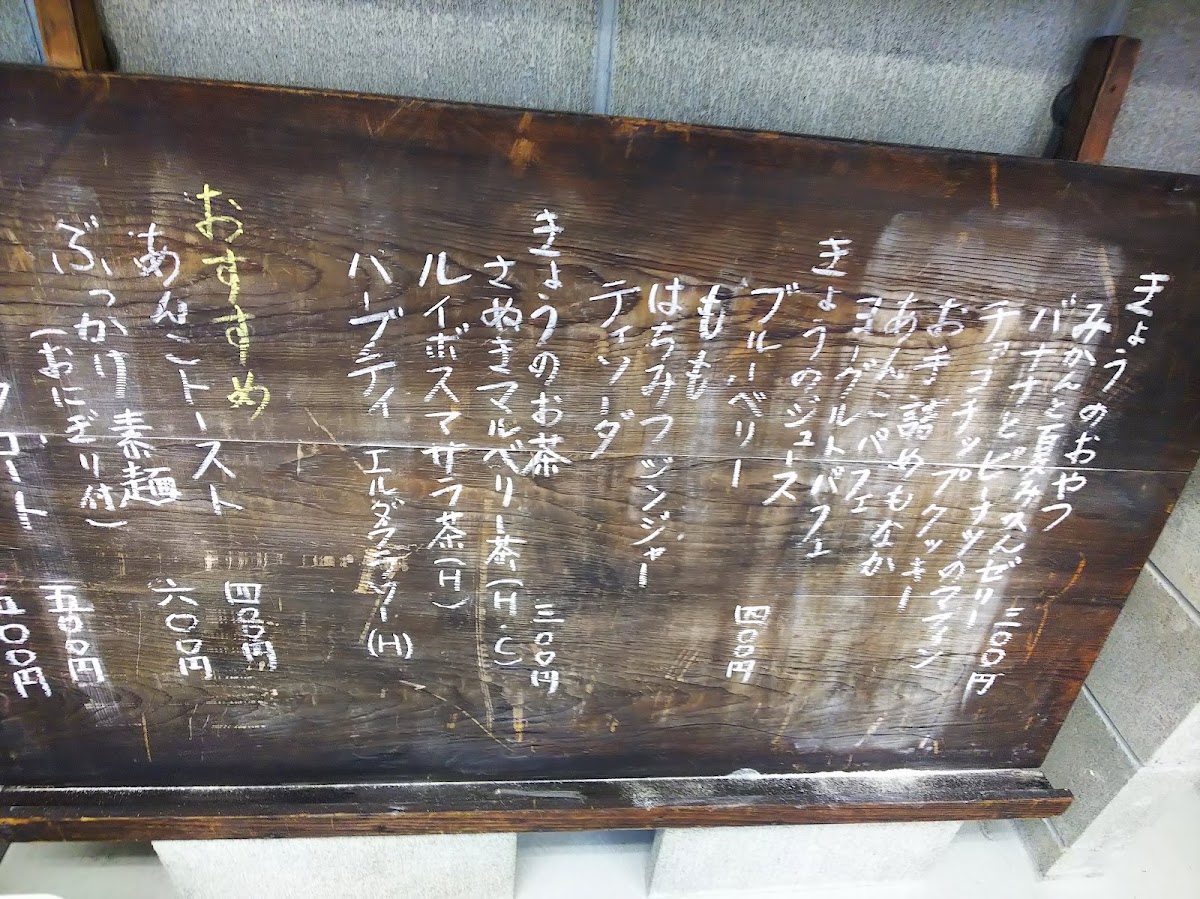 きょうのおやつ 三〇〇円
みかんと夏みかんゼリー
バナナとピーナッツのマフィン
チョコチップクッキー
お手詰めもなか
あんこパフェ
ヨーグルトパフェ
きょうのジュース 四〇〇円
ブルーベリー
もも
はちみつジンジャー
ティソーダ
きょうのお茶 三〇〇円
さぬきマルベリー茶(H・C)
ルイボスマサラ茶(H)
ハーブティ エルダフラワー(H)
おすすめ
あんこトースト 四〇〇円
ぶっかけ素麺 六〇〇円
(おにぎり付)
五〇〇円
五〇〇円